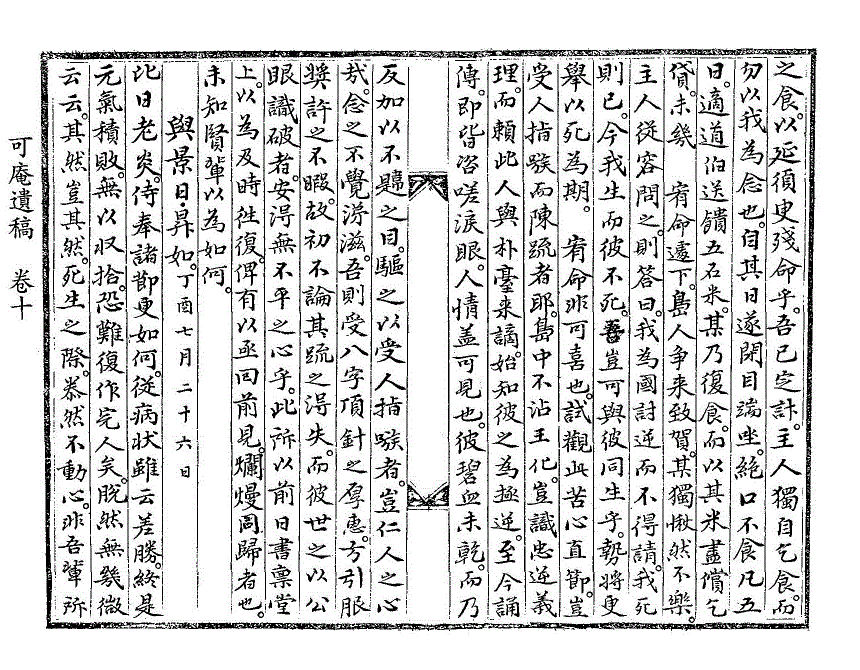 之食。以延須臾殘命乎。吾已定計。主人獨自乞食。而
勿以我爲念也。自其日遂閉目端坐。絶口不食凡五
日。適道伯送饋五石米。某乃復食。而以其米盡償乞
貸。未幾 宥命遽下。島人爭来致賀。某獨愀然不樂。
主人從容問之。則答曰。我爲國討逆而不得請。我死
則已。今我生而彼不死。吾豈可與彼同生乎。勢將更
擧以死爲期。 宥命非可喜也。試觀此苦心直節。豈
受人指嗾而陳䟽者耶。島中不沾王化。豈識忠逆義
理。而頼此人與朴臺来謫。始知彼之爲極逆。至今誦
傳。即皆咨嗟淚眼。人情盖可見也。彼碧血未乾。而乃
反加以不韙之目。驅之以受人指嗾者。豈仁人之心
㦲。念之不覺涕滋。吾則受八字頂針之厚惠。方引服
奬許之不暇。故初不論其䟽之得失。而彼世之以公
眼識破者。安淂無不平之心乎。此所以前日書禀堂
上。以爲及時徃復。俾有以亟回前見。爛熳同歸者也。
未知賢輩以爲如何。
與景日昇如。丁酉七月二十六日
比日老炎。侍奉諸節更如何。從病状雖云差勝。終是
元氣積敗。無以収拾。恐難復作完人矣。脱然無幾微
云云。其然豈其然。死生之際。恭然不動心。非吾輩所
可庵遺稿 卷十